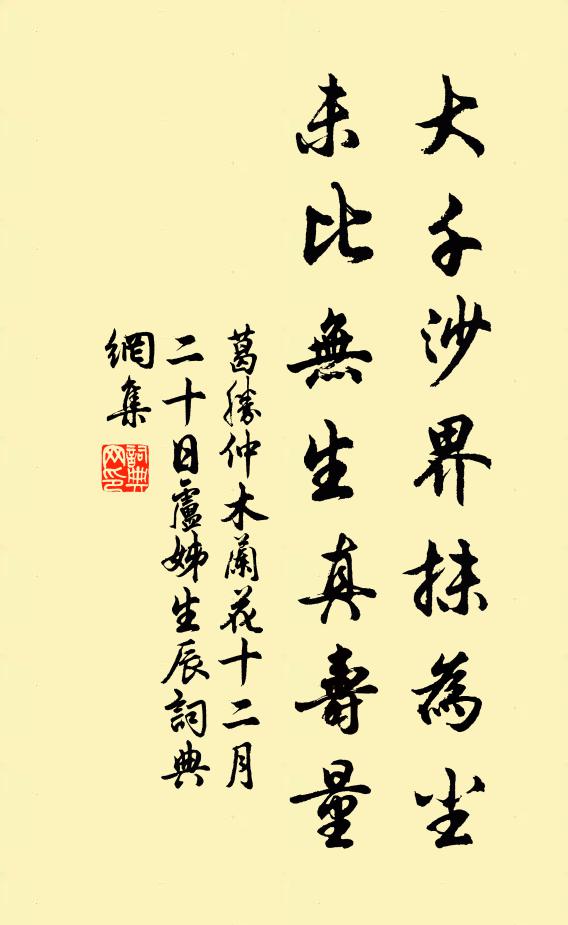 大千沙界抹為尘
未比無生真壽量
葛勝仲木蘭花十二月
二十日盧姊生辰詞典
網集
詞典网印